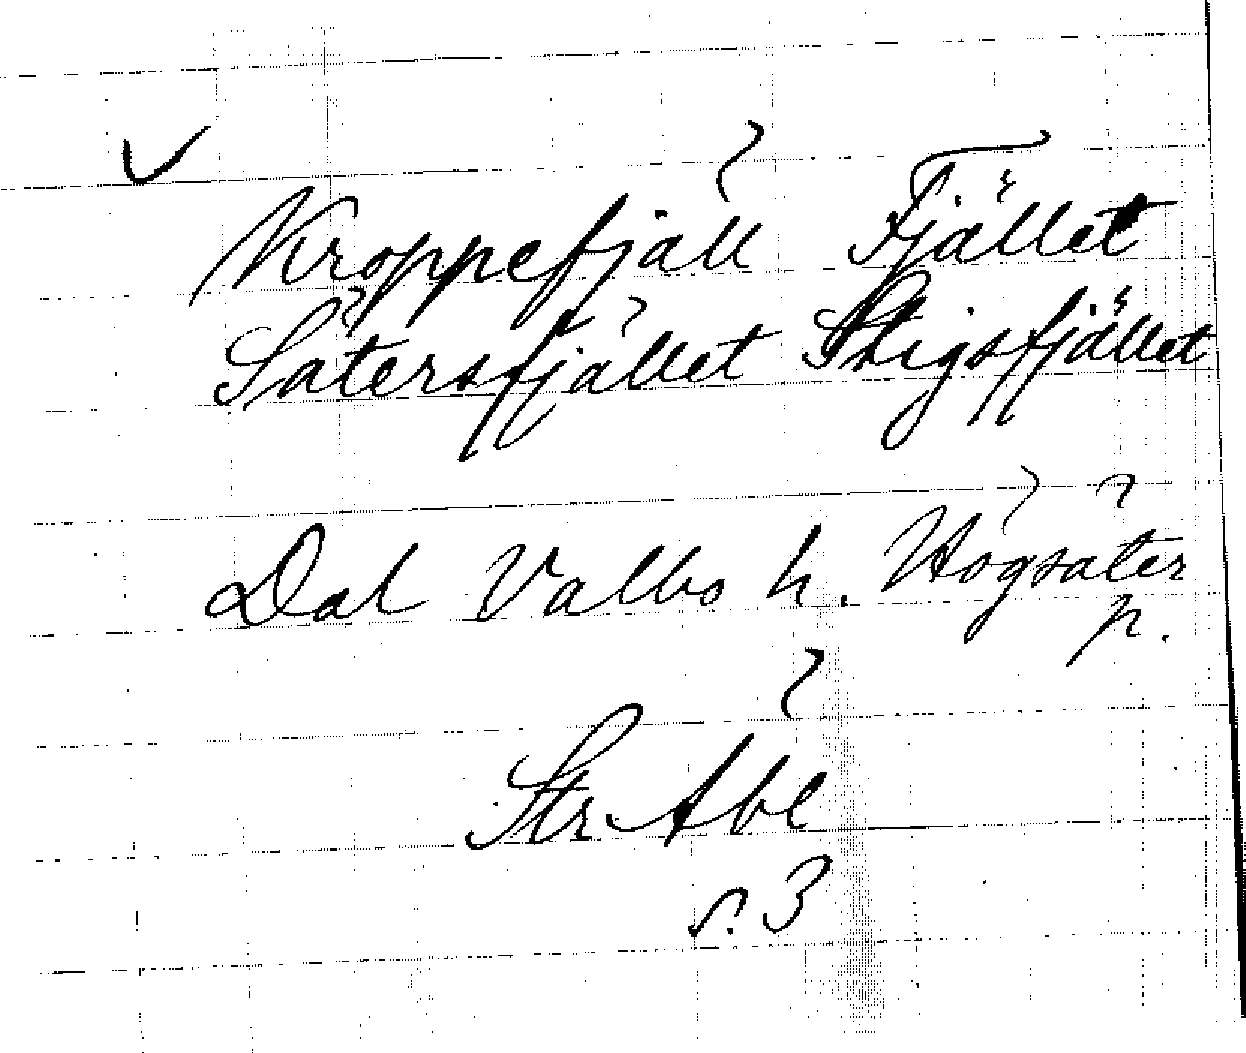 ✓
Kroppefjäll Fjället
Sätersfjället Stigsfjället
Dal Valbo h. Högsäter
p.
Str Abl
s. 3